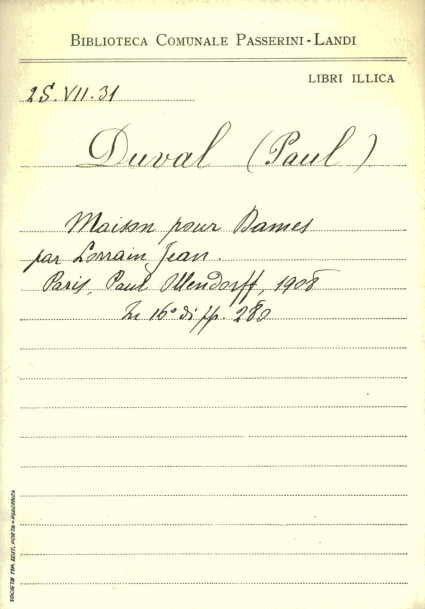 BIBLIOTECA COMUNALE PASSERINI-LANDI
LIBRI ILLICA
2S.VII.31
Duval (Paul)
Maison pour Dames
par Lorrain Jean.
Paris, Paul Ollendorff, 1908
In 16° di pp. 280